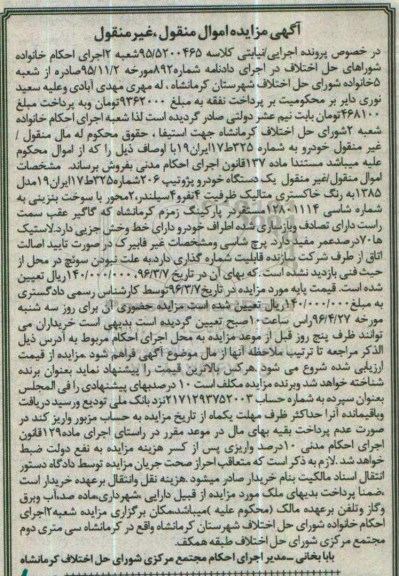 آگهی مزایده اموال منقول،غیر منقول
در خصوص پرونده اجرایی/نیابتی کلاسه ۹۵/۵۲۰۰۴۶۵شعبه ۲اجرای احکام خانواده
شوراهای حل اختلاف در اجرای دادنامه شماره۸۹۲مورخه ۹۵/۱۱/۲صادره از شعبه
۵خانواده شورای حل اختلاف شهرستان کرمانشاه، له مهری مهدی آبادی وعلیه سعید
نوری دایر بر محکومیت بر پرداخت نفقه به مبلغ ۹۳۶۲۰۰۰تومان وبه پرداخت مبلغ
۴۶۸۱۰۰تومان بابت نیم عشر دولتی صادر گردیده است لذا شعبه اجرای احکام خانواده
شعبه ۲شورای حل اختلاف کرمانشاه جهت استیفاء حقوق محکوم له مال منقول /
غیر منقول خودرو به شماره ۳۲۵ط۱۷ایران۱۹با اوصاف ذیل را که از اموال محکوم
علیه میباشد مستندا ماده ۱۳۷قانون اجرای احکام مدنی بفروش برساند. مشخصات
اموال منقول/غیر منقول یک دستگاه خودرو پژوتیپ ۲۰۶شماره۳۲۵ط۱۷ایران۱۹مدل
۱۳۸۵به رنگ خاکستری متالیک ظرفیت ۴نفرو۴سیلندر،۲محور با سوخت بنزینی به
شماره شاسی ۱۳۸۰۱۱۱۴ مستقردر پارکینگ زمزم کرمانشاه که گاگیر عقب سمت
راست دارای تصادف وبازسازی شده اطراف خودرو دارای خط وخش جزیی دارد.لاستیک
ها۷۰درصدعمر مفید دارد. پرچ شاسی ومشخصات غیر فابیرک در صورت تایید اصالت
اتاق از طرف شرکت سازنده قابلیت شماره گذاری داردبه علت نبودن سوئچ در محل از
حیث فنی بازدید نشده است.که بهای آن در تاریخ ۱۴۰/۰۰۰/۰۰۰،۹۶/۳/۷ریال تعیین
شده است. قیمت پایه مورد مزایده در تاریخ۹۶/۳/۷توسط کارشناس رسمی دادگستری
به مبلغ۱۴۰/۰۰۰/۰۰۰ریال تعیین شده است مزایده حضوری آن برای روز سه شنبه
مورخه ۹۶/۴/۲۷راس ساعت ۱۰صبح تعیین گردیده است بدیهی است خریداران می
توانند ظرف پنج روز قبل از موعد مزایده به محل اجرای احکام مربوط به آدرس ذیل
الذکر مراجعه تا ترتیب ملاحظه آنها از مال موضوع آگهی فراهم شود مزایده از قیمت
ارزیابی شده شروع می شود .هرکس بالاترین قیمت را پیشنهاد نماید بعنوان برنده
شناخته خواهد شد وبرنده مزایده مکلف است ۱۰ درصدبهای پیشنهادی را فی المجلس
بعنوان سپرده به شماره حساب ۲۱۷۱۲۹۳۷۵۲۰۰۳نزد بانک ملی تودیع ورسید دریافت
وباقیمانده آنرا حداکثر ظرف مهلت یکماه از تاریخ مزایده به حساب مزبور واریز کند در
صورت عدم پرداخت بقیه بهای مال در موعد مقرر در راستای اجرای ماده۱۲۹قانون
اجرای احکام مدنی ۱۰درصد واریزی پس از کسر هزینه مزایده به نفع دولت ضبط
خواهد شد .لازم به ذکر است که متعاقب احراز صحت جریان مزایده توسط دادگاه دستور
انتقال اسناد مالکیت بنام خریدار صادر میشود .هزینه نقل وانتقال برعهده خریدار است
،ضمنا پرداخت بدیهای ملک مورد مزایده از قبیل دارایی ،شهرداری،ماده صد،آب وبرق
وگاز وتلفن برعهده مالک (محکوم علیه )میباشد.مکان برگزاری مزایده شعبه۲اجرای
احکام خانواده شورای حل اختلاف شهرستان کرمانشاه واقع در کرمانشاه سی متری دوم
مجتمع مرکزی شورای حل اختلاف طبقه همکف.
بابا بخانی –مدیر اجرای احکام مجتمع مرکزی شورای حل اختلاف کرمانشاه